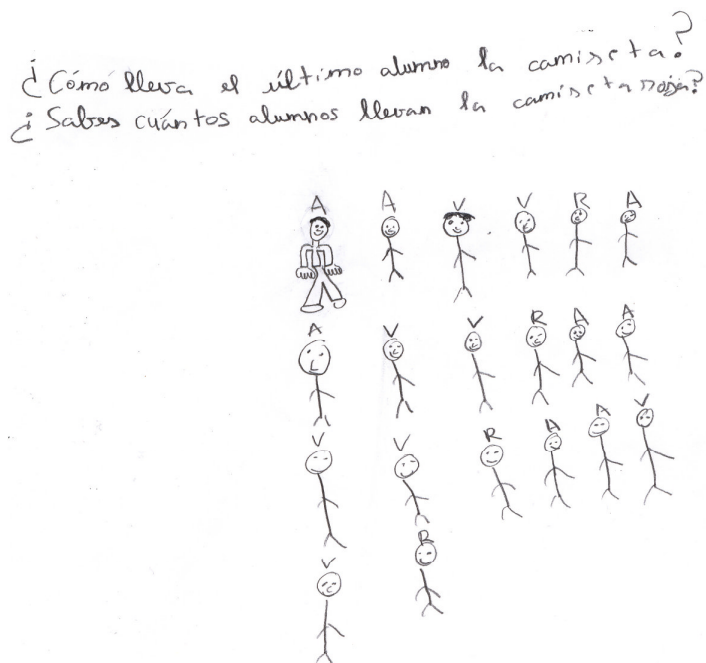 ¿Cómo lleva el último alumno la camiseta?
¿Sabes cuántos alumnos llevan la camiseta roja?
A A V V R A
A V V R A A
V V R A A V
V R